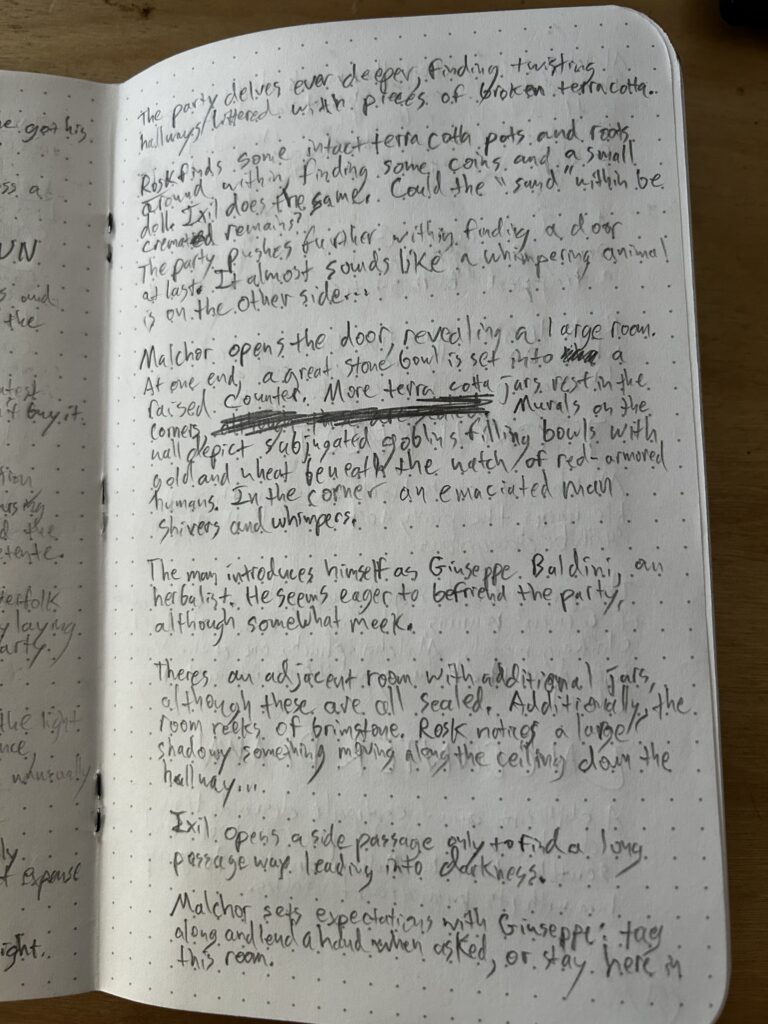 e got his
ss a
UN
s and
the
atest
't buy it.
tion
using
d the
etente.
terfolk
y laying
arty.
the light
nce,
unusually
ly
t expense
ight.
The party delves ever deeper, finding twisting
hallways littered with pieces of broken terracotta.
Rosk finds some intact terra cotta pots and roots
around within, finding some coins and a small
doll. Ixil does the same. Could the "sand" within be
cremated remains?
The party pushes further within finding a door
at last. It almost sounds like a whimpering animal
is on the other side...
Malchor opens the door, revealing a large room.
At one end, a great stone bowl is set into a
raised counter. More terra cotta jars rest in the
corners. Murals on the
wall depict subjugated goblins filling bowls with
gold and wheat beneath the watch of red-armored
humans. In the corner an emaciated man
shivers and whimpers.
The man introduces himself as Giuseppe Baldini, an
herbalist. He seems eager to befriend the party,
although somewhat meek.
Theres an adjacent room with additional jars,
although these are all sealed. Additionally, the
room reeks of brimstone. Rosk notices a large
shadowy something moving along the ceiling down the
hallway...
Ixil opens a side passage only to find a long
passage way leading into darkness.
Malchor sets expectations with Giuseppe: tag
along and lend a hand when asked, or stay here in
this room.